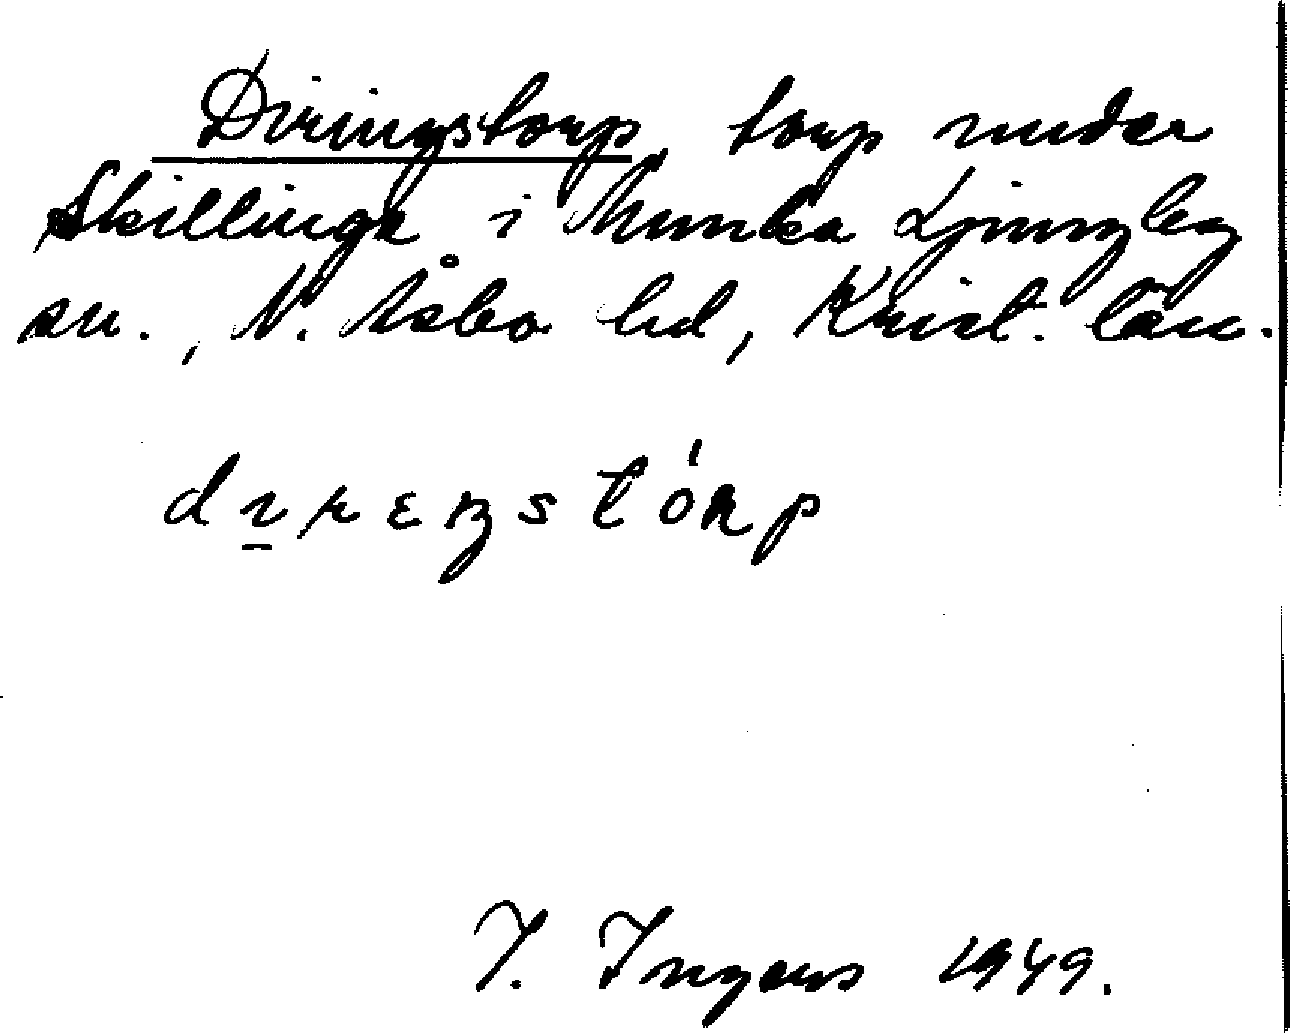 Diringstorp, torp under
Skillinge i Munka Ljungby
sn., N. Åsbo hd, Krist. län.
I. Ingers 1949.